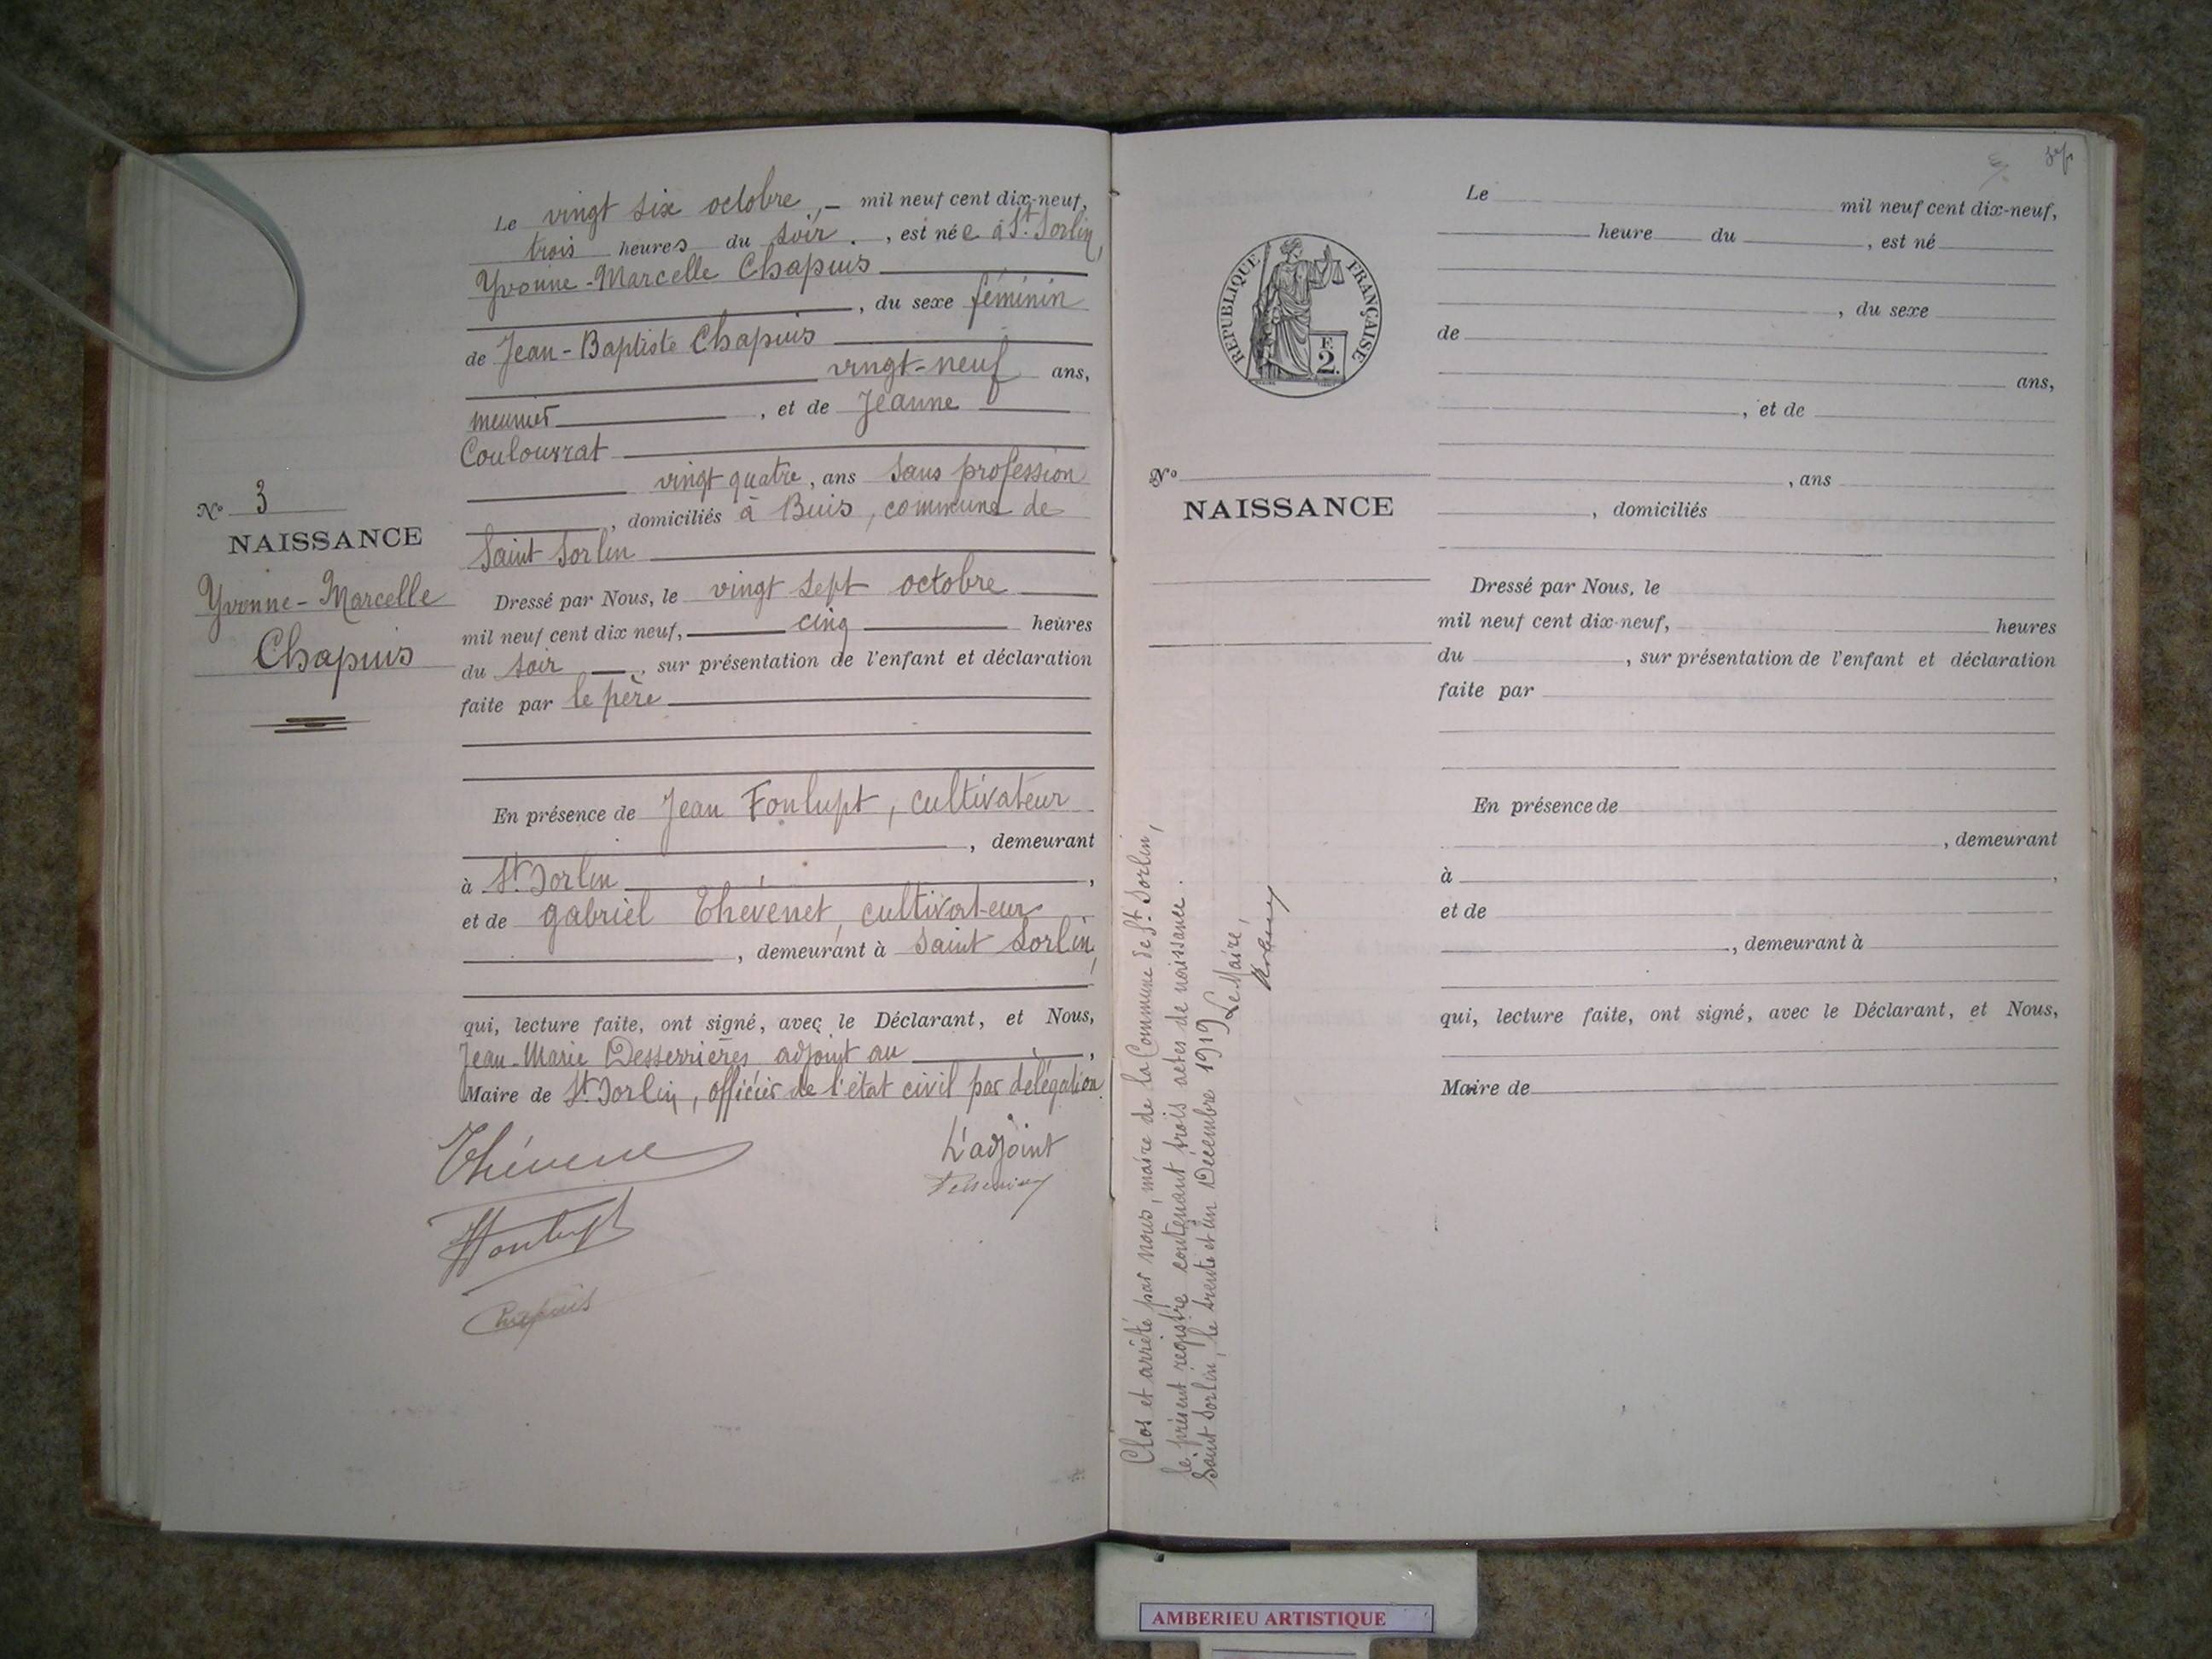 Le vingt six octobre, mil neuf cent dix-neuf,
trois heures du soir, est née à St. Sorlin,
Yvonne-Marcelle Chapuis
, du sexe féminin
de Jean-Baptiste Chapuis
vingt-neuf ans,
meunier, et de Jeanne
Coulourrat
vingt quatre, ans sans profession
, domiciliés à Buis, commune de
Saint Sorlin
N° 3
NAISSANCE
Yvonne-Marcelle
Chapuis
Dressé par Nous, le vingt sept octobre
mil neuf cent dix neuf, cinq heures
du soir, sur présentation de l'enfant et déclaration
faite par le père
En présence de Jean Fonlupt, cultivateur
, demeurant
à St. Sorlin,
et de gabriel Thévenet, cultivateur
, demeurant à Saint Sorlin,
qui, lecture faite, ont signé, avec le Déclarant, et Nous,
Jean-Marie Desserrières adjoint au,
Maire de St. Sorlin, officier de l'état civil par délégation.
L'adjoint
Chapuis
Clos et arrêté par nous, maire de la Commune de St. Sorlin,
le présent registre contenant trois actes de naissance.
Saint Sorlin, le trente et un Décembre 1919
Le Maire,
REPUBLIQUE FRANÇAISE
F.
2.
N°
NAISSANCE
Le mil neuf cent dix-neuf,
heure du, est né
, du sexe
de
ans,
, et de
, ans
, domiciliés
Dressé par Nous, le
mil neuf cent dix-neuf, heures
du, sur présentation de l'enfant et déclaration
faite par
En présence de
, demeurant
à,
et de
, demeurant à
qui, lecture faite, ont signé, avec le Déclarant, et Nous,
Maire de
AMBERIEU ARTISTIQUE